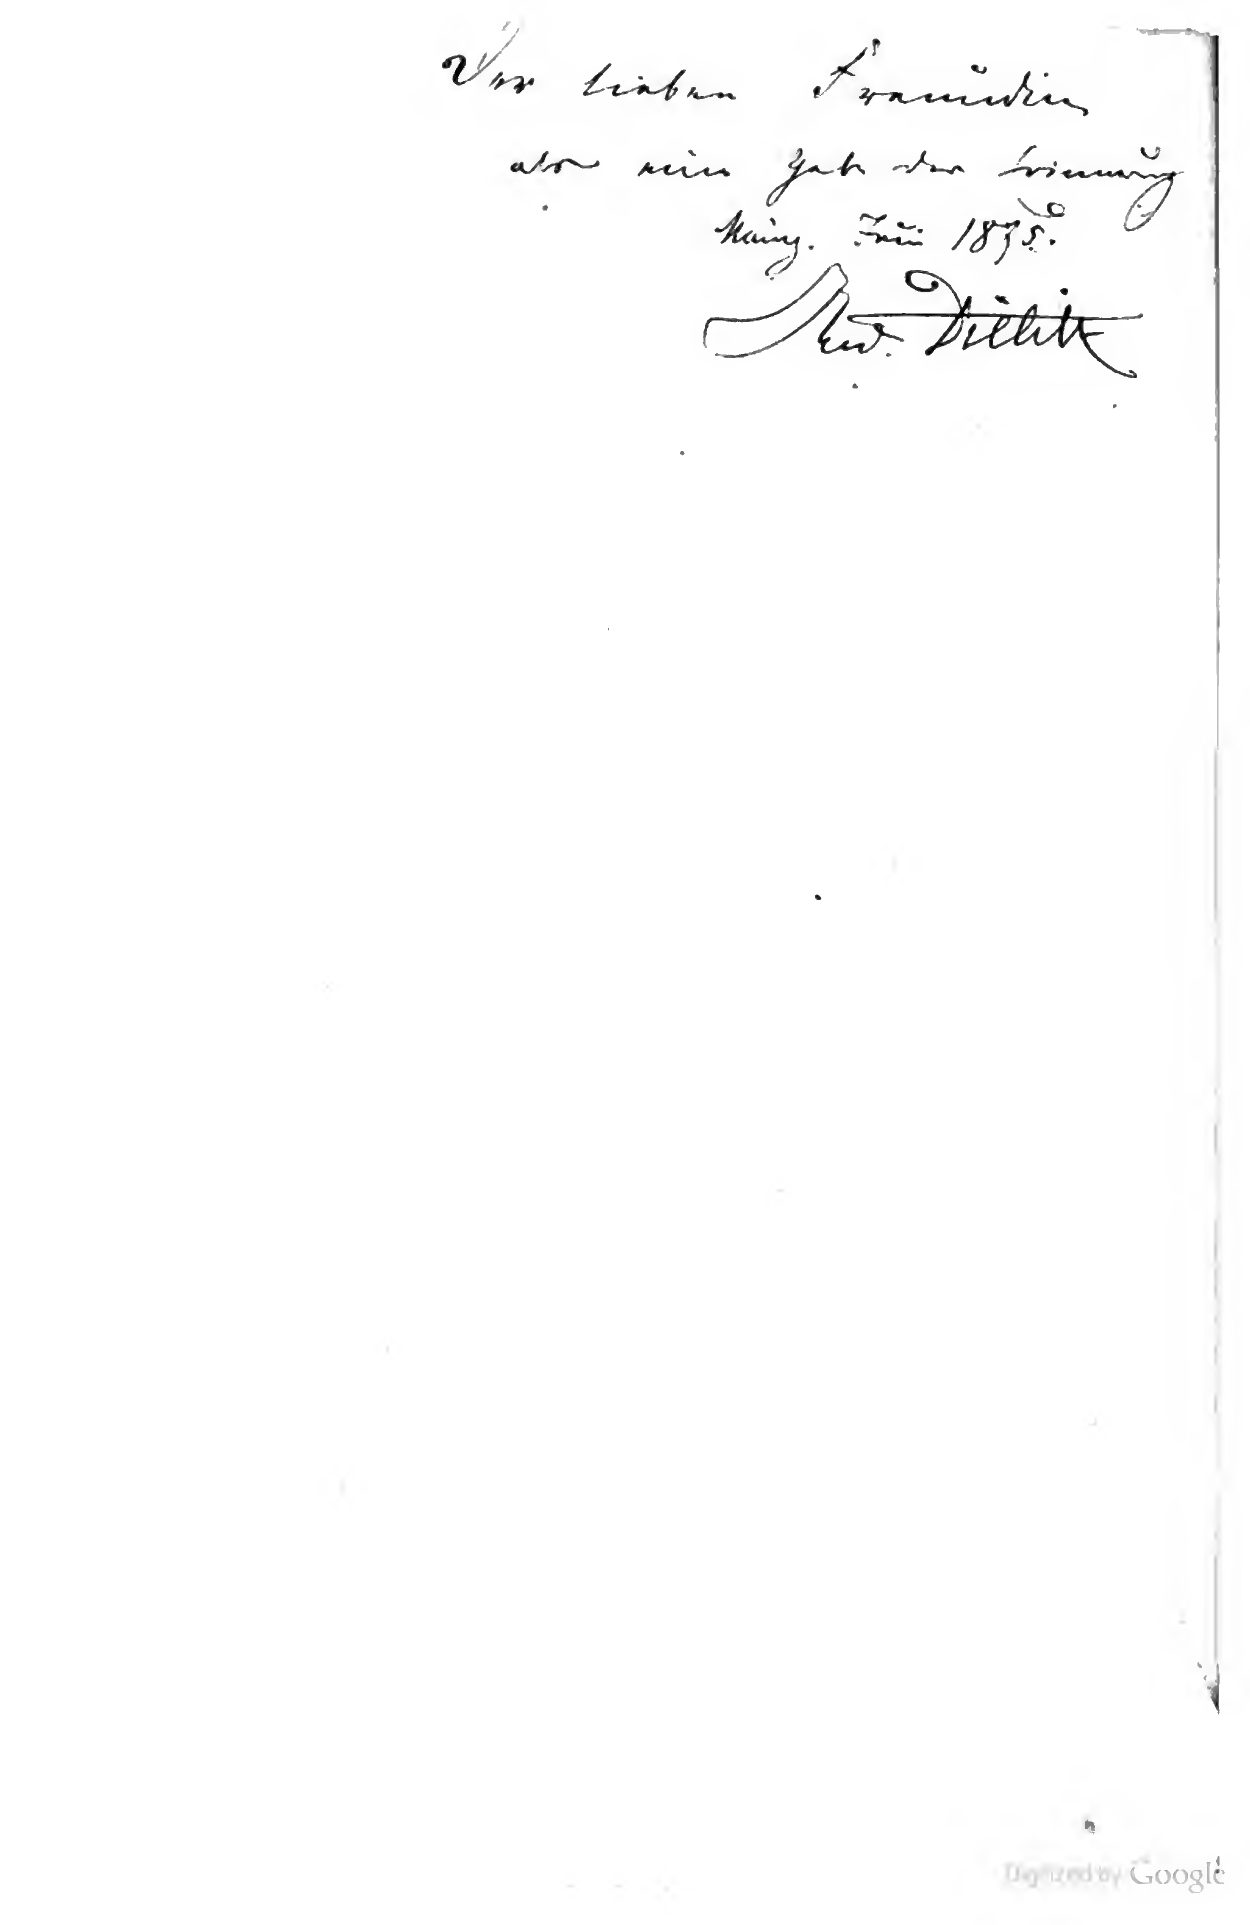 Der lieben Freundin
als eine Gabe der Erinnerung
Mainz. Juni 1875.
Digitized by Google